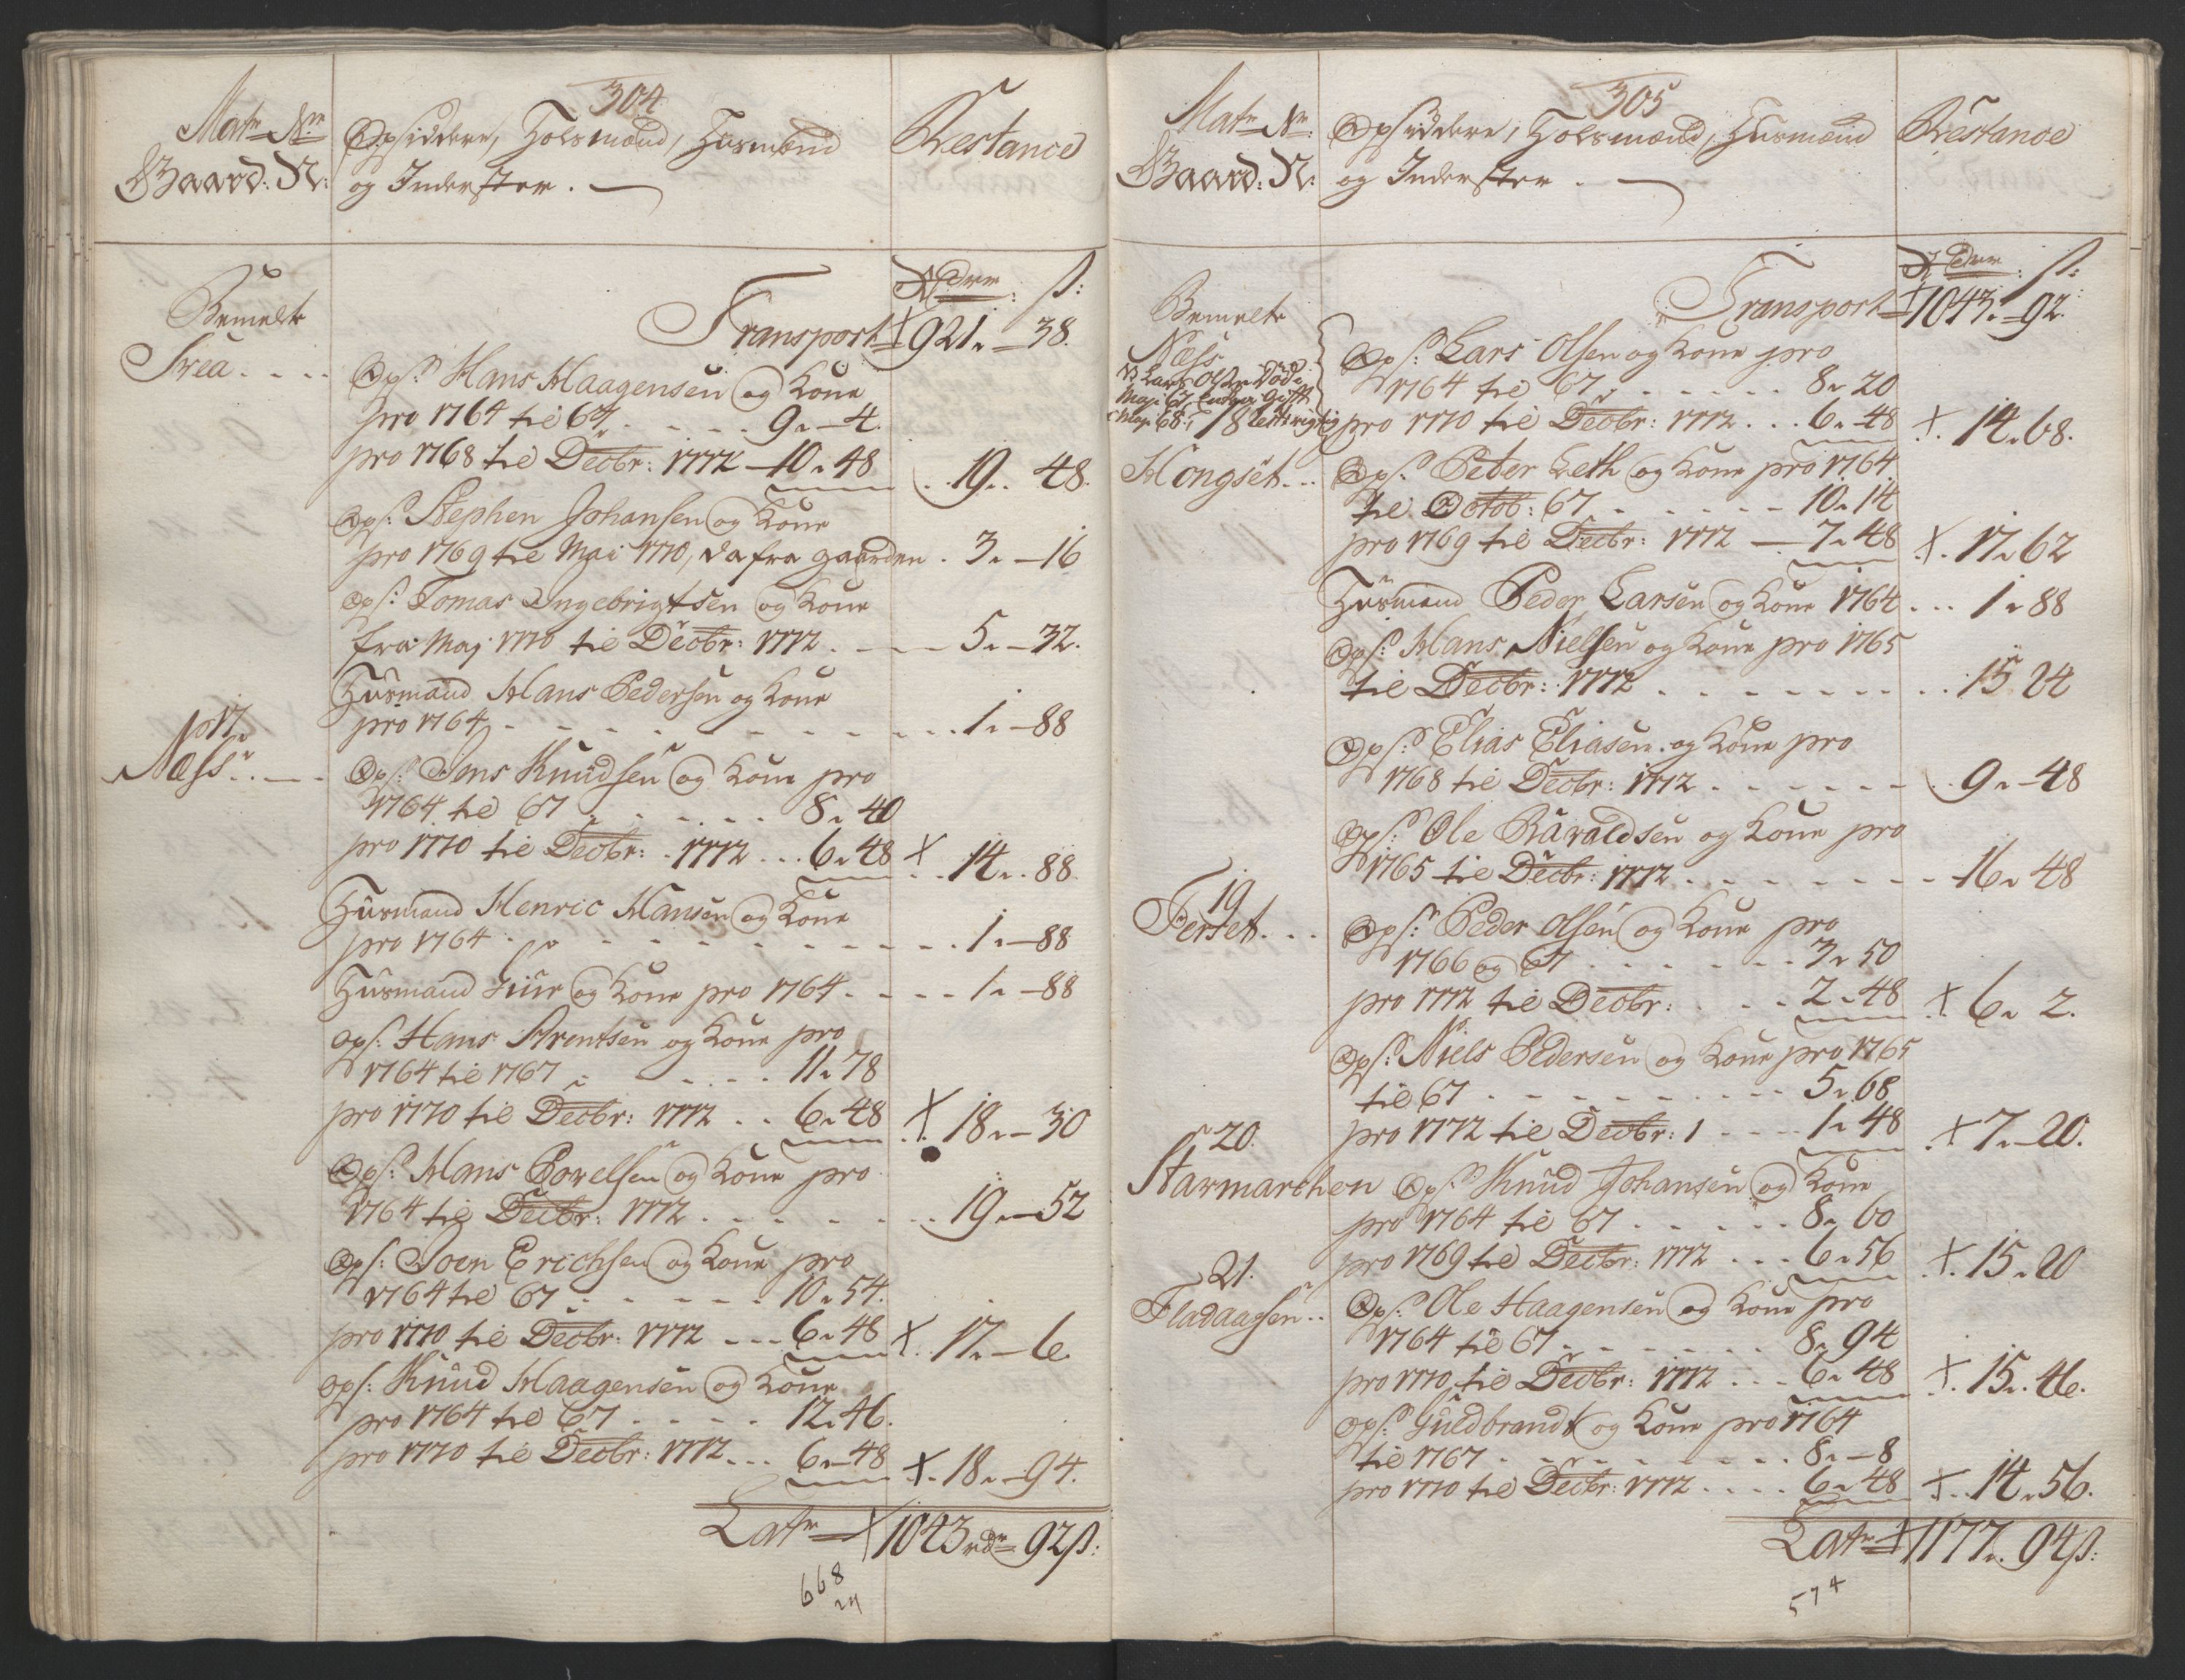 304
Matr No:
Gaard: N:
Opsiddere, Holsmænd, Husmænd
og Inderster.
Restance
Bemelte
Svea....
Rdr: s:
Transport 921 - 38.
Ops: Hans Haagensen og Kone
pro 1764 til 67 .... 9 - 4.
pro 1768 til Decbr: 1772 - 10 - 48 .. 19 .. 48.
Ops: Stephen Johansen og Kone
pro 1769 til Mai 1770, da fra gaarden . 3 - 16
Ops: Tomas Ingebrigtsen og Kone
fra Maj 1770 til Decbr: 1772 . - - 5 - 32.
Husmand Hans Pedersen og Kone
pro 1764 - - - - - 1 - 88
17.
Næss.. - -
Ops: Jens Knudsen og Kone pro
1764 til 67 .... 8 - 40
pro 1770 til Decbr: 1772 ... 6 - 48 X .. 14 .. 88
Husmand Henric Hansen og Kone
pro 1764 - - - - - 1 - 88
Husmand Siur og Kone pro 1764 - - - - 1 - 88
Ops: Hans Arentsen og Kone pro
1764 til 1767 - .... 11 - 78
pro 1770 til Decbr: 1772 .. 6 - 48 X 18 - 30
Ops: Hans Povelsen og Kone pro
1764 til Decbr: 1772 . - - - - 19 - 52
Ops: Joen Erichsen og Kone pro
1764 til 67 - - - - 10 - 54.
pro 1770 til Decbr: 1772 --- 6 - 48 X .. 17 - 6
Ops: Knud Haagensen og Kone
pro 1764 til 67 . - - - 12 - 46.
pro 1770 til Decbr: 1772 ... 6 - 48 X. 18 - 94.
Latr 1043 rdr 92 s:
668
24
305
Matr No:
Gaard: N:
Opsiddere, Holsmænd, Husmænd
og Inderster.
Restance
Rdr: s:
Transport 1043 - 92.
Bemelte
Næss
Lars Olsen Død
Maji 67
Ops: Lars Olsen og Kone pro
1764 til 67 - - - - 8 - 20
pro 1770 til Decbr: 1772 ... 6 - 48 X. 14 - 68.
18
Hongset...
Ops: Peter Leth og Kone pro 1764
til Octob: 67 - - - - 10 - 14
pro 1769 til Decbr: 1772 - 7 - 48 X. 17 - 62
Husmand Peder Larsen og Kone 1764 ... 1 - 88
Ops: Hans Nielsen og Kone pro 1765
til Decbr: 1772 . - - - - - .. 15 24
Ops: Elias Eliasen og Kone pro
1768 til Decbr: 1772 . - - - - .. 9 - 48
Ops: Ole Raraldsen og Kone pro
1765 til Decbr: 1772 . - - - - - 16 - 48
19
Ferset...
Ops: Peder Olsen og Kone pro
1766 og 67 . - - - - 3 - 50
pro 1772 til Decbr: . - - - 2 - 48 X 6 - 2.
Ops: Niels Pedersen og Kone pro 1765
til 67 - - - - - 5 - 68
pro 1772 til Decbr: 1 - - - 1 - 48 .X 7 - 20.
20.
Starmarchen
Ops: Knud Johansen og Kone
pro 1764 til 67 . - - - - 8 - 60
pro 1769 til Decbr: 1772 ... 6 - 56 X. 15 - 20
21.
Fladaasen..
Ops: Ole Haagensen og Kone pro
1764 til 67 - - - - 8 - 94
pro 1770 til Decbr: 1772 ... 6 - 48 X. 15 - 46.
Ops: Guldbrandt og Kone pro 1764
til 1767 - - - - 8 - 8
pro 1770 til Decbr: 1772 .... 6 - 48 X. 14 - 56.
Latr 1177 - 94 s:
574